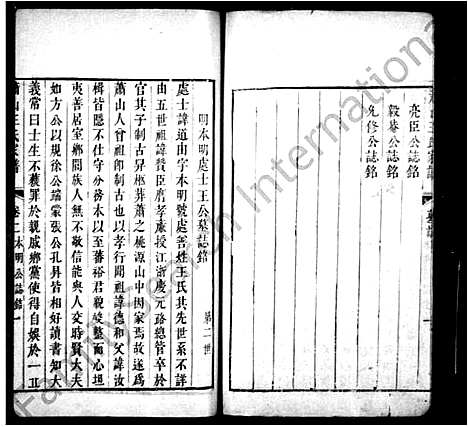 亮臣公誌銘
毅菴公誌銘
允修公誌銘
明本明處士王公墓誌銘
第二世
處士諱道由字本明號處善姓王氏其先世系不詳
由五世祖諱贊臣膺孝廉授江浙慶元路總
官其子制古舁柩葬蕭之桃源山中因家焉故遂爲
蕭山人曾祖卽制古也以孝行聞祖諱德和父諱汝
楫皆隱不仕守分務本以至蕃裕君貌嚴整而心坦
夷善居室鄉閭族人無不敬信能與人交時賢大夫
如方公以規徐公端蒙張公孔昇皆相好讀書知大
義常曰士生不獲罪於親戚鄉黨使得自娛於一丘
蕭山王氏家譜 卷二 本明公誌銘 一
FamilySearch International